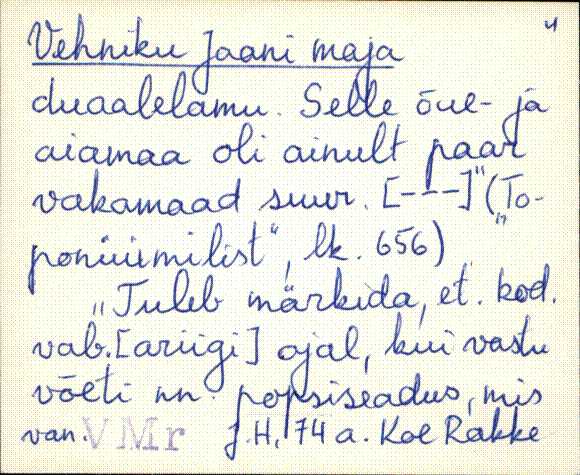 4
Vehniku Jaani maja
duaalelamu. Selle õue- ja
aiamaa oli ainult paar
vakamaad suur. [---]" („To-
ponüümilist", lk. 656)
„Tuleb märkida, et. kod.
vab.[ariigi] ajal, kui vastu
võeti nn. popsiseadus, mis
van. VMr J.H., 74 a. Koe Rakke